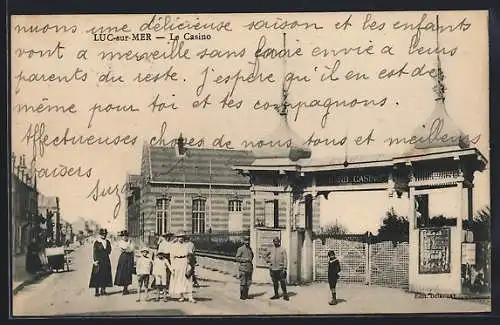 nuons une délicieuse saison et les enfants
LUC-sur-MER — Le Casino
vont à merveille sans faire envie à leurs
parents du reste. J'espère qu'il en est de
même pour toi et tes compagnons.
Affectueuses choses de nous tous et meilleurs
baisers
Suz
CASINO